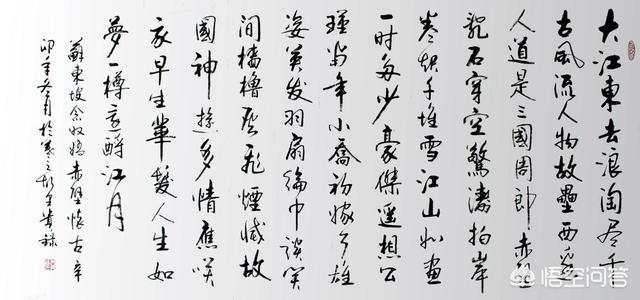 大江東去浪淘尽千
古風流人物故壘西邊
人道是三國周郎赤壁
亂石穿空驚濤拍岸
卷起千堆雪江山如畫
一時多少豪傑遥想公
瑾当年小喬初嫁了雄
姿英发羽扇綸巾談笑
間檣櫓灰飛煙滅故
國神遊多情應笑
我早生華髮人生如
夢一樽還酹江月
蘇東坡念奴嬌赤壁懷古辛
卯年冬月於羲之故里
悟空问答